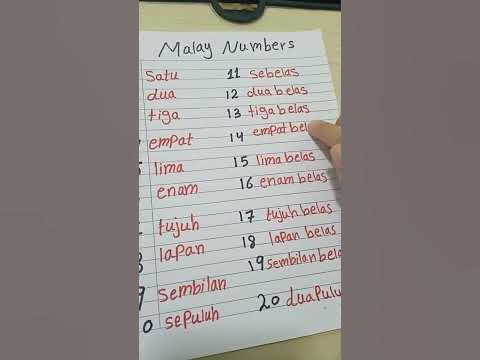 Malay Numbers
Satu 11 sebelas
dua 12 dua belas
tiga 13 tiga belas
empat 14 empat bela
lima 15 lima belas
enam 16 enam belas
tujuh 17 tujuh belas
8 lapan 18 lapan belas
9 sembilan 19 sembilan bela
0 sepuluh 20 dua Pulu